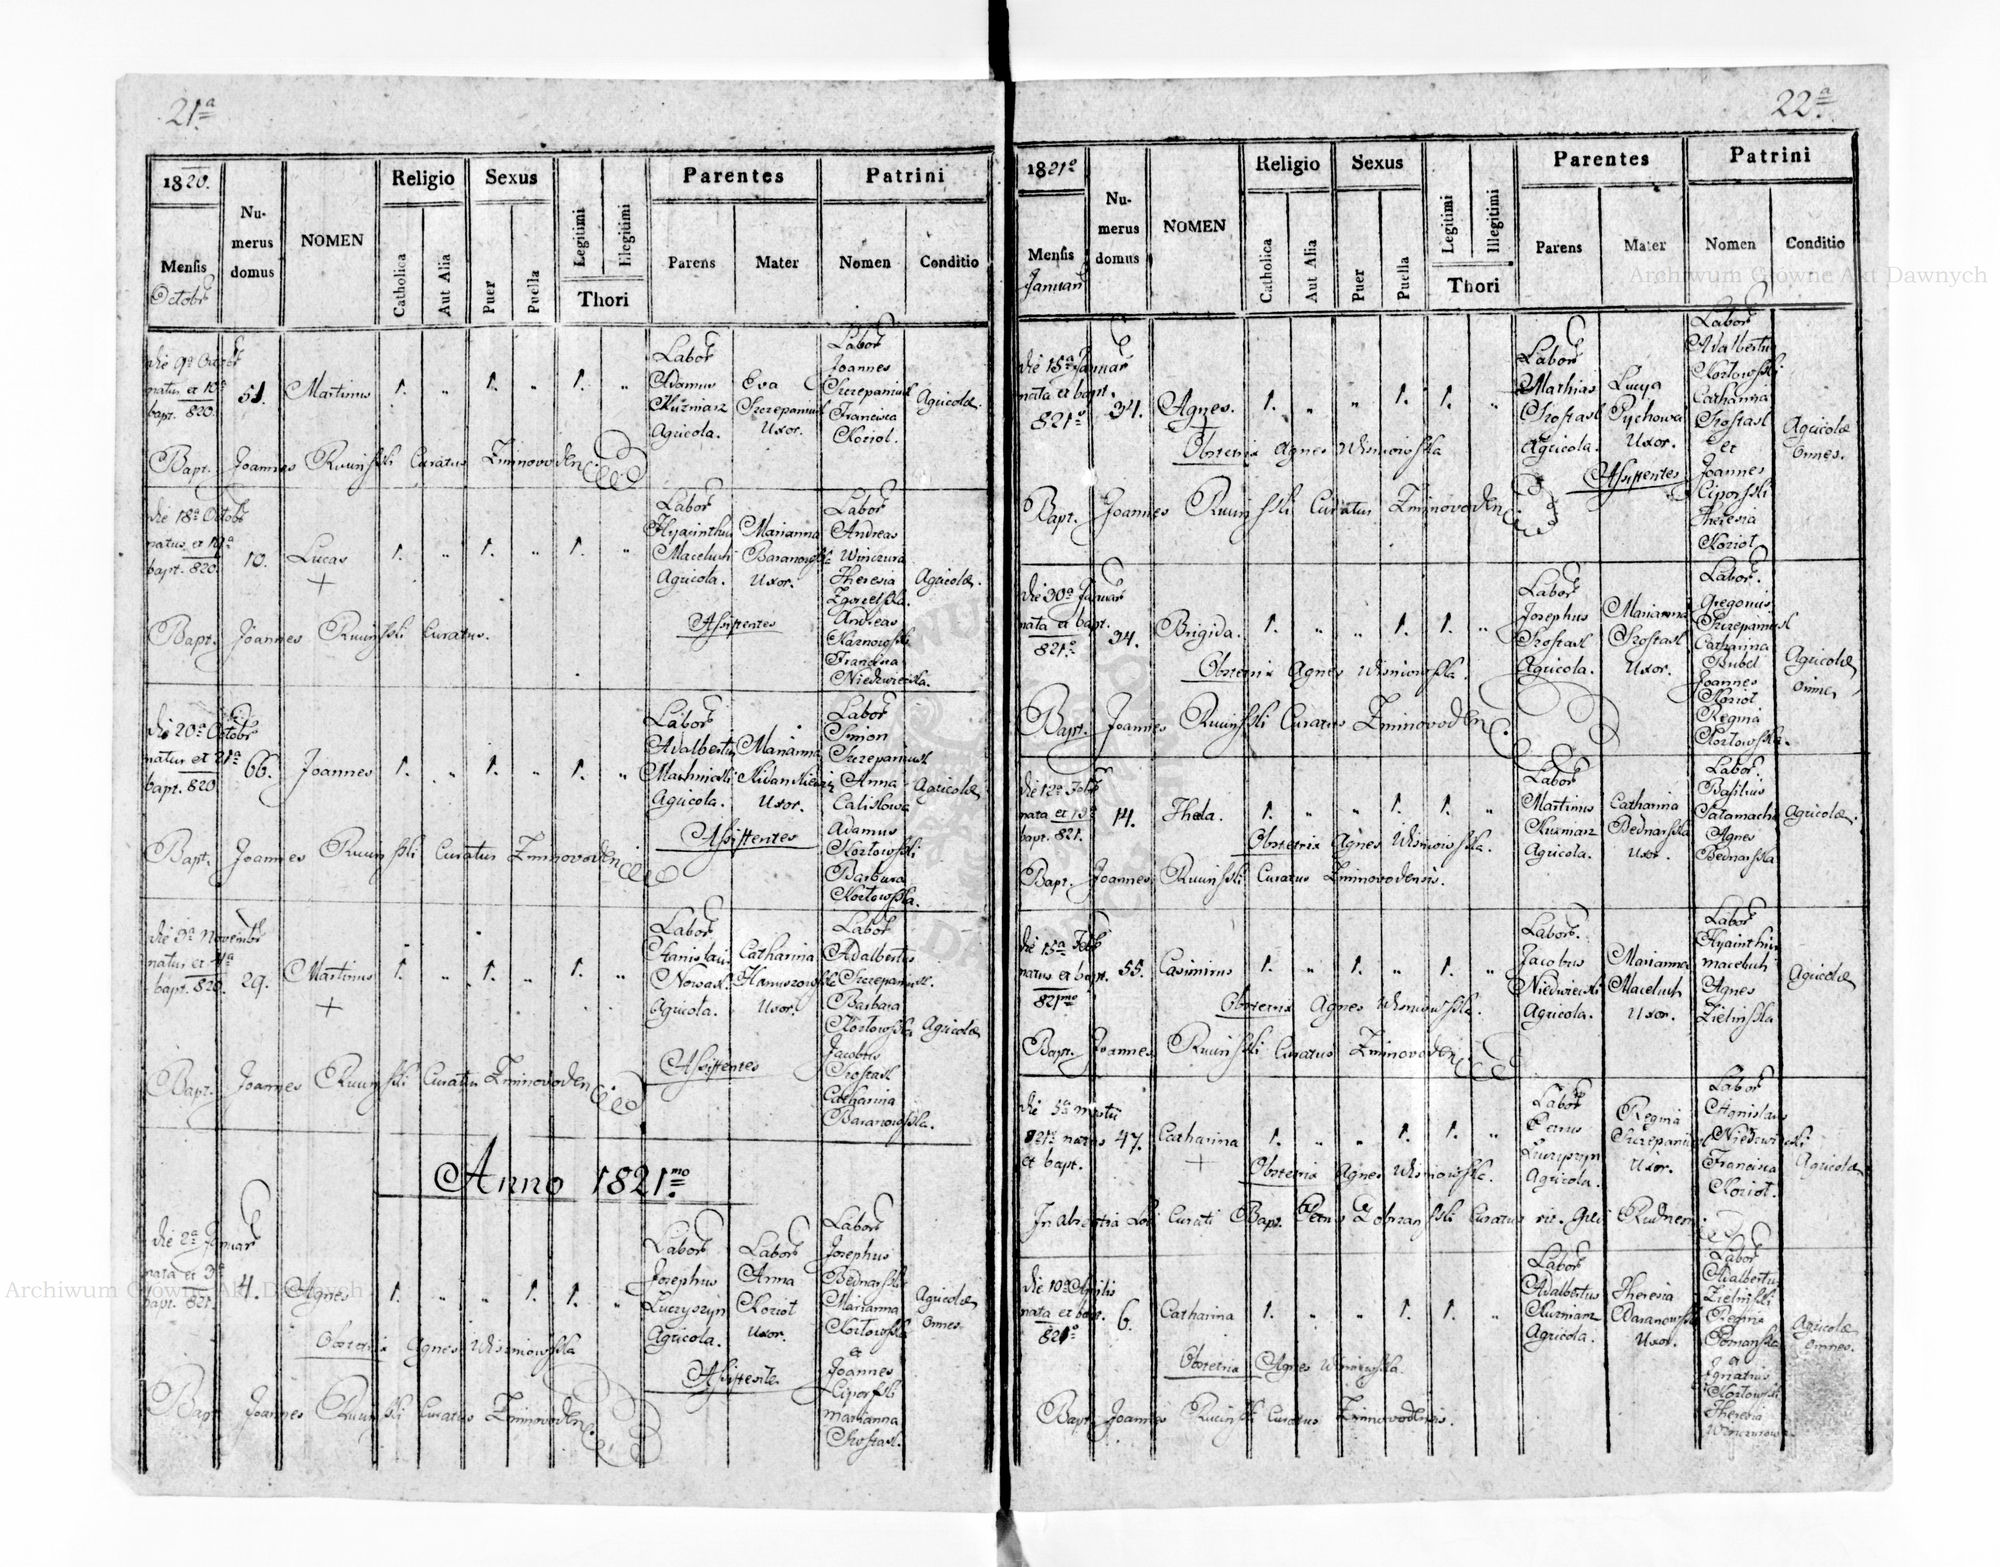 21ª
1820.
Mensis
Octobr
Numerus domus
NOMEN
Religio
Catholica
Aut Alia
Sexus
Puer
Puella
Legitimi
Illegitimi
Thori
Parentes
Parens
Mater
Patrini
Nomen
Conditio
die 9ª Octobr
natus et 10ª
bapt. 820.
51.
Martinus
1. „ 1. „ 1. „
Labor
Adamus
Kuzniarz
Agricola.
Eva
Szczepaniuk
Uxor.
Labor
Joannes
Szczepaniuk
Francisca
Koziol.
Agricolæ.
Bapt. Joannes Rucinski Curatus Zminovoden
die 18ª Octobr
natus et 19ª
bapt. 820.
10.
Lucas
+
1. „ 1. „ 1. „
Labor
Hyacinthus
Maceluch
Agricola.
Marianna
Baranowska
Uxor.
Labor
Andreas
Winczura
Theresia
Zgorzelska.
Agricolæ.
Assistentes
Andreas
Karnowski
Francisca
Niedzwiecka.
Bapt. Joannes Rucinski Curatus.
die 20ª Octobr
natus et 21ª
bapt. 820
66.
Joannes
1. „ 1. „ 1. „
Labor
Adalbertus
Machnicki
Agricola.
Marianna
Uxor.
Labor
Simon
Szczepaniuk
Anna
Calislowa
Agricolæ
Assistentes
Adamus
Kozlowski
Barbara
Kozlowska.
Bapt. Joannes Rucinski Curatus Zminovoden
die 3ª Novembr
natus et 4ª
bapt. 820.
29.
Martinus
+
1. „ 1. „ 1. „
Labor
Stanislaus
Nowak.
Agricola.
Catharina
Hanuszowska
Uxor.
Labor
Adalbertus
Szczepaniuk.
Barbara
Kozlowska
Agricolæ
Assistentes
Jacobus
Szostak
Catharina
Baranowska.
Bapt. Joannes Rucinski Curatus Zminovoden
Anno 1821mo
die 2ª Januar
nata et 3ª
bapt. 821.
4.
Agnes
1. „ „ 1. 1. „
Labor
Josephus
Luczyszyn
Agricola.
Labor
Anna
Koziol
Uxor.
Labor
Josephus
Bednarski
Marianna
Kozlowska
et
Joannes
Ciporski
Marianna
Szostak.
Agricolæ
omnes
Obstetrix Agnes Wisniowska
Assistentes
Bapt. Joannes Rucinski Curatus Zminovoden.
22ª
1821º
Mensis
Januar
Numerus domus
NOMEN
Religio
Catholica
Aut Alia
Sexus
Puer
Puella
Legitimi
Illegitimi
Thori
Parentes
Parens
Mater
Patrini
Nomen
Conditio
die 15ª Januar
nata et bapt.
821º
34.
Agnes.
+
1. „ „ 1. 1. „
Labor
Mathias
Szostak
Agricola.
Lucya
Pychowa
Uxor.
Assistentes
Labor
Adalbertus
Kozlowski
Catharina
Szostak
et
Joannes
Ciporski
Theresia
Koziol.
Agricolæ
omnes.
Obstetrix Agnes Wisniowska
Bapt. Joannes Rucinski Curatus Zminovoden
die 30ª Januar
nata et bapt.
821º
34.
Brigida.
1. „ „ 1. 1. „
Labor
Josephus
Szostak
Agricola.
Marianna
Szostak
Uxor.
Labor.
Gregorius
Szczepaniuk
Catharina
Bubel
Joannes
Koziol.
Regina
Kozlowska.
Agricolæ
omnes
Obstetrix Agnes Wisniowska.
Bapt. Joannes Rucinski Curatus Zminovoden
die 12ª Febr
nata et 13ª
bapt. 821.
14.
Thecla.
1. „ „ 1. 1. „
Labor
Martinus
Kuzniarz
Agricola.
Catharina
Bednarska
Uxor.
Labor.
Basilius
Patamacha
Agnes
Bednarska
Agricolæ.
Obstetrix Agnes Wisniowska.
Bapt. Joannes Rucinski Curatus Zminovodensis.
die 15ª Febr
natus et bapt.
821mo
55.
Casimirus
1. „ 1. „ 1. „
Labor.
Jacobus
Niedzwiecki
Agricola.
Marianna
Maceluch
Uxor.
Labor
Hyacinthus
maceluch
Agnes
Zielinska
Agricolæ
Obstetrix Agnes Wisniowska.
Bapt. Joannes Rucinski Curatus Zminovoden
die 5ª Martii
821º natus
et bapt.
47.
Catharina
+
1. „ „ 1. 1. „
Labor
Petrus
Luczyszyn
Agricola.
Regina
Szczepaniuk
Uxor.
Labor
Stanislaus
Niedzwiecki
Francisca
Koziol.
Agricolæ
Obstetrix Agnes Wisniowska.
In absentia Loci Curati Bapt. Petrus Curatus rit. Rudnen
die 10ª Aprilis
nata et bapt.
821º
6.
Catharina
1. „ „ 1. 1. „
Labor
Adalbertus
Kuzniarz
Agricola.
Theresia
Baranowska
Uxor.
Labor
Adalbertus
Zielinski
Regina
Romanska
et
Ignatius
Kozlowski
Theresia
Winczurowa
Agricolæ
omnes.
Obstetrix Agnes Wisniowska.
Bapt. Joannes Rucinski Curatus Zminovodensis.
Archiwum Główne Akt Dawnych
Archiwum Główne Akt Dawnych